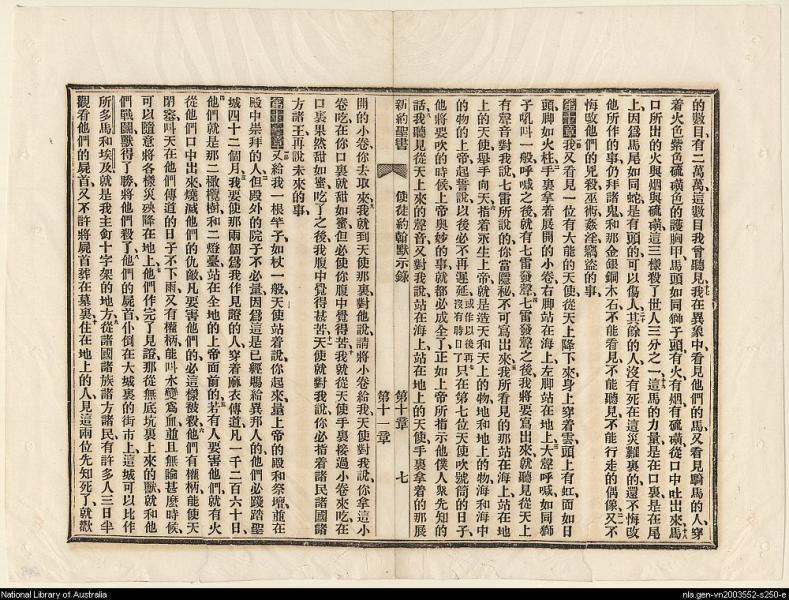 的數目有二萬萬這數目我曾聽見我在異象中看見他們的馬又看見騎馬的人穿
着火色紫色硫磺色的護胸甲馬頭如同獅子頭有火有烟有硫磺從口中吐出來馬
口所出的火與烟與硫磺這三樣殺了世人三分之一這馬的力量是在口裏是在尾
上因爲馬尾如同蛇是有頭的可以傷人其餘的人沒有死在這災難裏的還不悔改
他所作的事仍拜諸鬼和那金銀銅木石不能看見不能聽見不能行走的偶像又不
悔改他們的兇殺巫術姦淫竊盜的事
第十章我又看見一位有大能的天使從天上降下來身上穿着雲頭上有虹面如日
頭脚如火柱手裏拿着展開的小卷右脚站在海上左脚站在地上大聲呼喊如同獅
子吼叫一般呼喊之後就有七雷發聲七雷發聲之後我將要寫出來就聽見從天上
有聲音對我說七雷所說的你當隱秘不可寫出來我所看見的那站在海上站在地
上的天使舉手向天指着永生上帝就是造天和天上的物地和地上的物海和海中
的物的上帝起誓說以後必不再遲延或作以後再沒有時日了只在第七位天使吹號筒的日子
他將要吹的時候上帝奧妙的事就都必成全了正如上帝所指示他僕人衆先知的
話我聽見從天上來的聲音又對我說站在海上站在地上的天使手裏拿着的那展
新約聖書 使徒約翰默示錄 第十章 第十一章 七
開的小卷你去取來我就到天使那裏對他說請將小卷給我天使對我說你拿這小
卷吃在你口裏就甜如蜜但必使你腹中覺得苦我就從天使手裏接過小卷來吃在
口裏果然甜如蜜吃了之後我腹中覺得甚苦天使就對我說你必指着諸民諸國諸
方諸王再說未來的事
第十一章又給我一根竿子如杖一般天使站着說你起來量上帝的殿和祭壇並在
殿中崇拜的人但殿外的院子不必量因爲這是已經賜給異邦人的他們必踐踏聖
城四十二個月我要使那兩個爲我作見證的人穿着麻衣傳道凡一千二百六十日
他們就是那二橄欖樹和二燈臺站在全地的上帝面前的若有人要害他們就有火
從他們口中出來燒滅他們的仇敵凡要害他們的必這樣被殺他們有權柄能使天
閉塞叫天在他們傳道的日子不下雨又有權柄能叫水變爲血並且無論甚麽時候
可以隨意將各樣災殃降在地上他們作完了見證那從無底坑裏上來的獸就和他
們戰鬭獸得了勝將他們殺了他們的屍首仆倒在大城裏的街市上這城可以比作
所多馬和埃及就是我主釘十字架的地方從諸國諸族諸方諸民有許多人三日半
觀看他們的屍首又不許將屍首葬在墓裏住在地上的人見這兩位先知死了就歡
National Library of Australia
nla.gen-vn2003552-s250-e